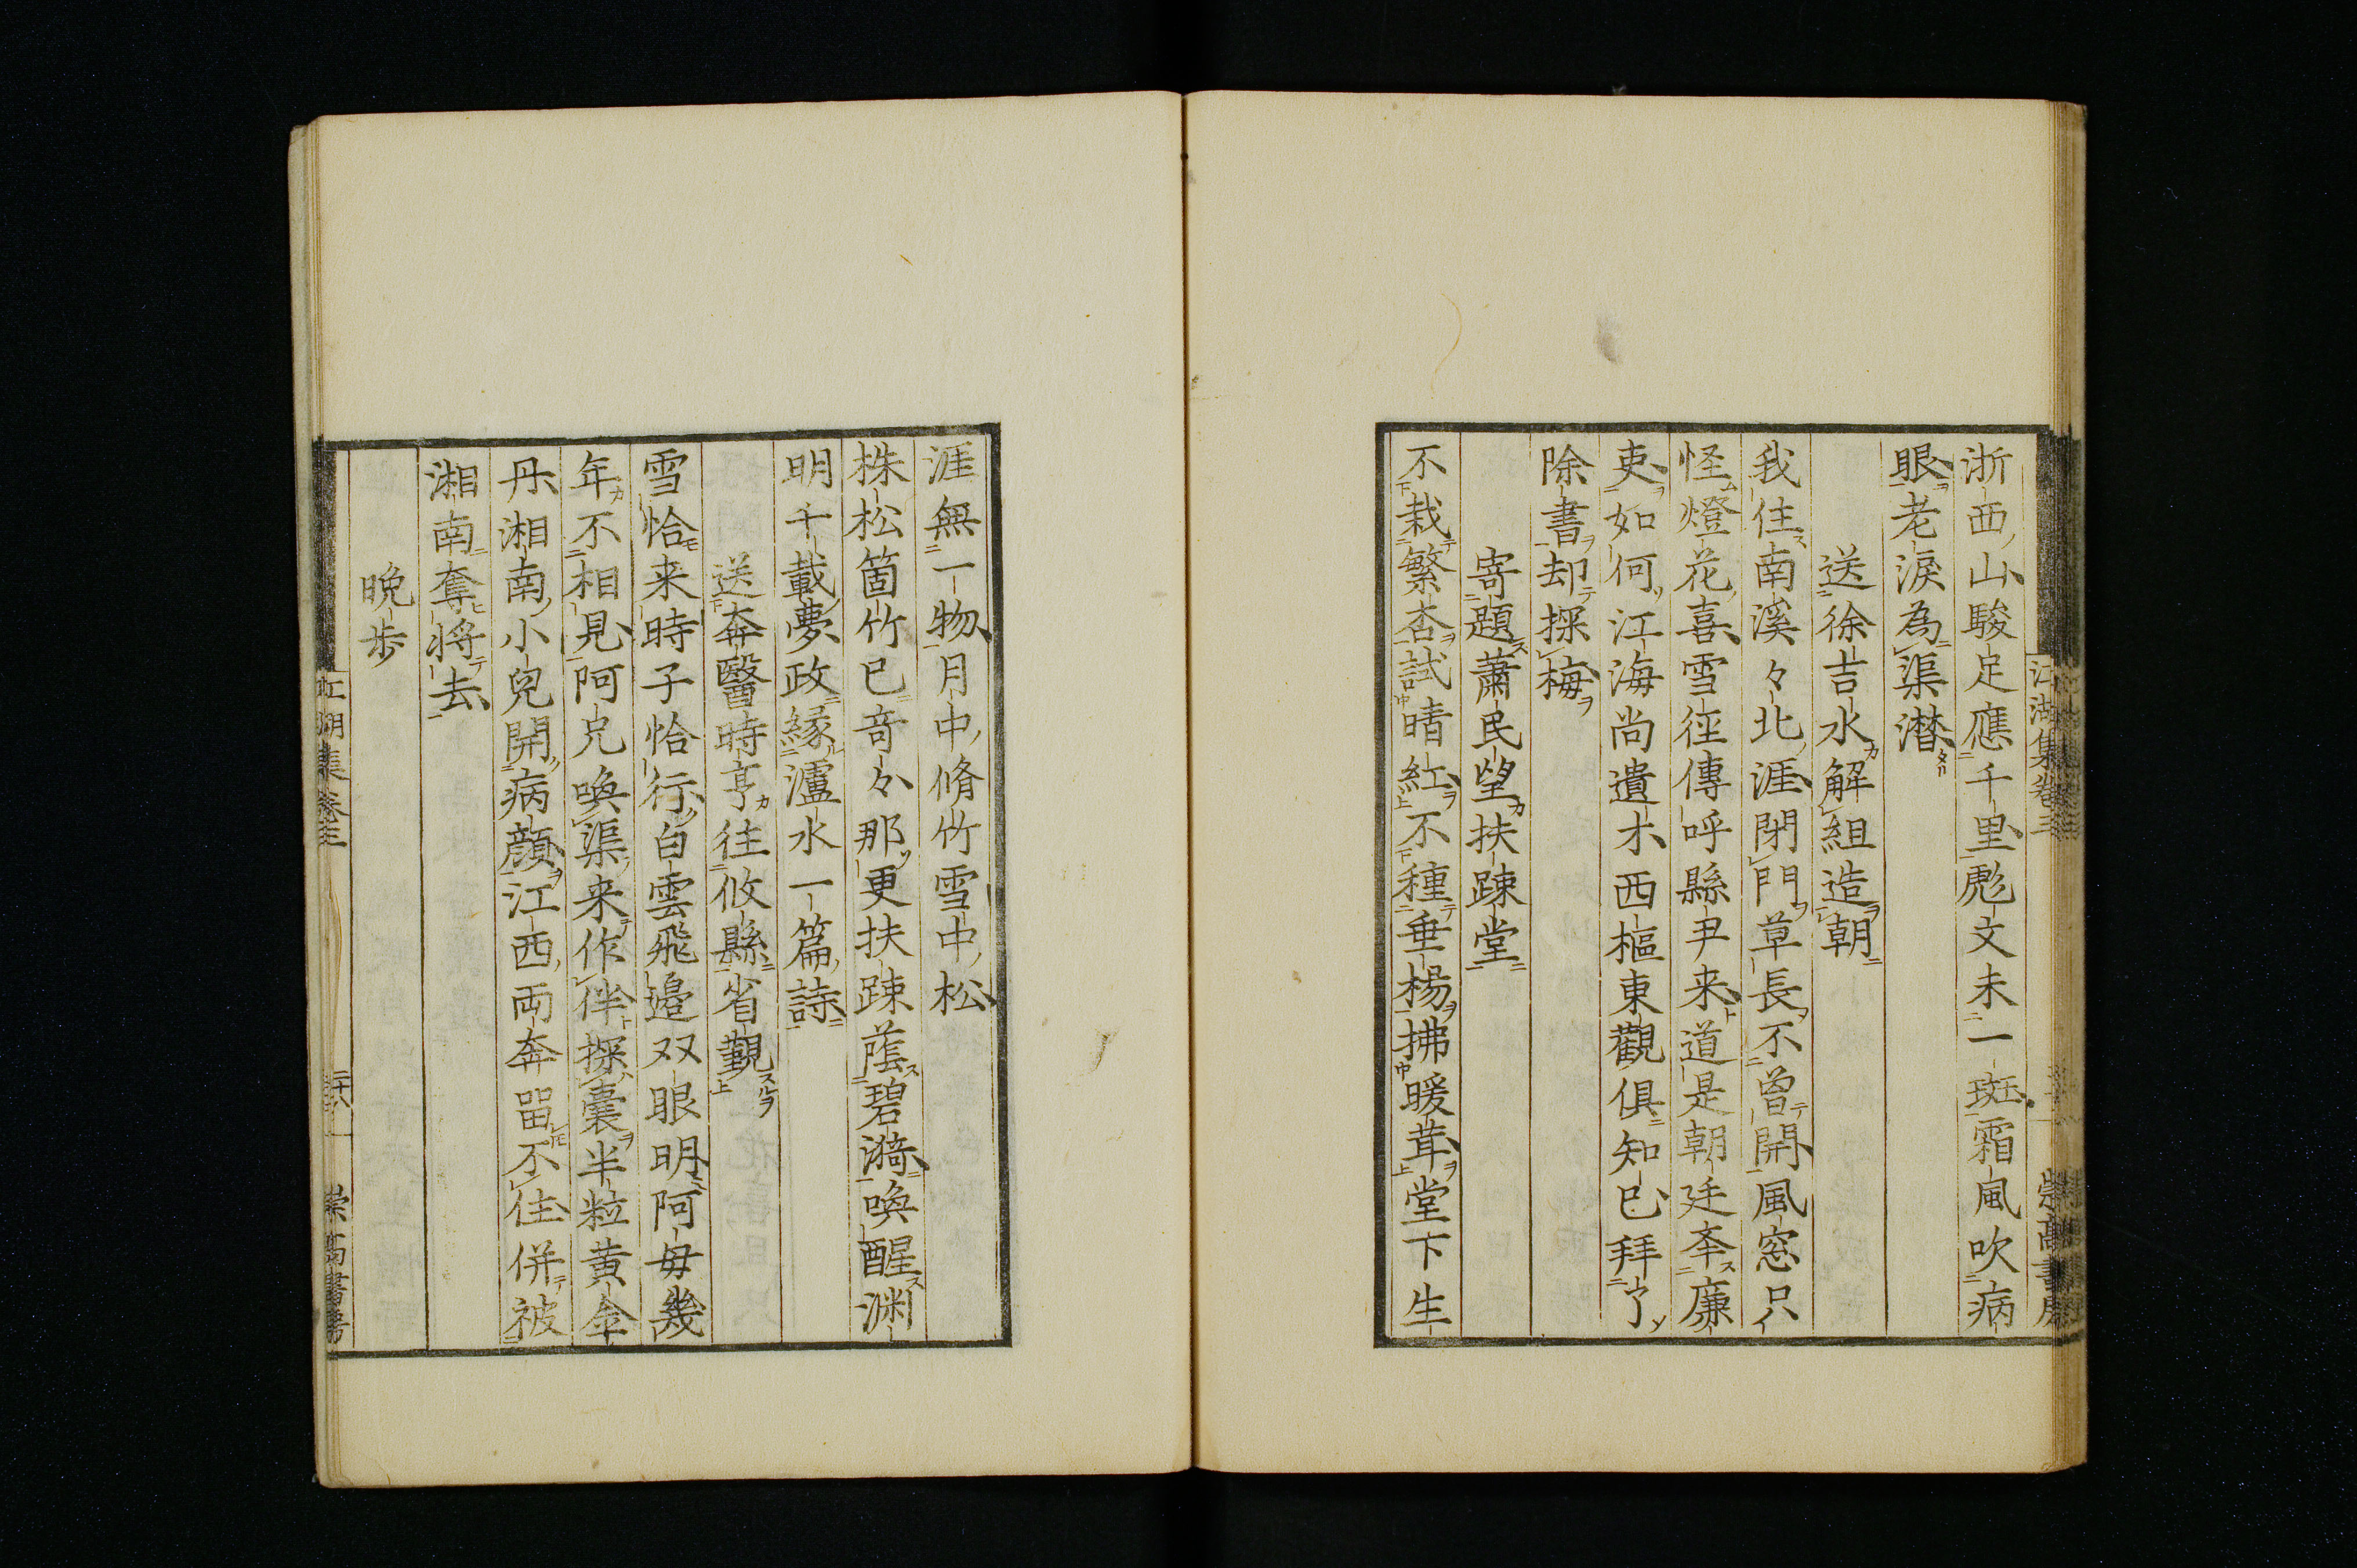 浙西山駿足應千里彪文未一斑霜風吹病
眼老淚為渠潸
送徐吉水解組造朝
我住南溪々北涯閉門草長不曽開風窓只
怪燈花喜雪徃傳呼縣尹来道是朝廷夲廉
吏如何江海尚遺才西樞東觀俱知已拜了
除書却探梅
寄題蕭民望扶踈堂
不栽繁杏試晴紅不種垂楊拂暖茸堂下生
江湖集卷三
崇高書房
涯無一物月中脩竹雪中松
株松箇竹已竒々那更扶踈蔭碧漪喚醒淵
明千載夢政緣瀘水一篇詩
送奔醫時亨徃攸縣省覲
雪恰来時子恰行白雲飛邉双眼明阿毋幾
年不相見阿兄喚渠来作伴探囊半粒黄金
丹湘南小兒開病顔江西両奔留不住併被
湘南奪将去
晩歩
江湖集卷三
二十八
崇高書房